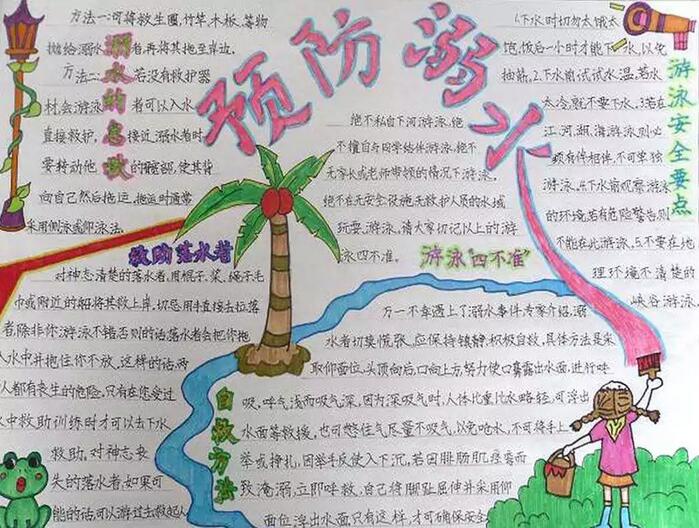 预防溺水
溺水的急救
方法一:可将救生圈,竹草,木板,等物
抛给溺水者,再将其拖至岸边,
方法二:若没有救护器
材会游泳者可以入水
直接救护,接近溺水者时
要转动他的髋部,使其背
向自己然后拖运,拖运时通常
采用侧泳或仰泳法.
绝不私自下河游泳,绝
不擅自与同学结伴游泳,绝不
无家长或老师带领的情况下游泳,
绝不在无安全设施无救护人员的水域
玩耍,游泳,请大家切记以上的游
泳四不准.
游泳"四不准"
游泳安全要点
1,下水时切勿太饿太
饱,饭后一小时才能下水,以免
抽筋,2.下水前试试水温,若水
太冷,就不要下水,3若在
江,河,湖,海游泳则必
须有伴相伴,不可单独
游泳,4下水前观察游泳
的环境若有危险警告则
不能在此游泳,5.不要在地
理环境不清楚的
峡谷游泳
救助落水者
对神志清楚的落水者,用棍子,桨,绳子毛
巾或附近的船将其救上岸,切忌用手直接去拉落
者,除非你游泳不错否则的话落水者会把你拖
入水中并抱住你不放,这样的话,两
人都有丧生的危险,只有在您受过
水中救助训练时才可以去下水
救助,对神志丧
失的落水者,如果可
能的话,可以游过去救起人
自救方法
万一不幸遇上了溺水事件专家介绍,溺
水者切莫慌张,应保持镇静,积极自救,具体方法是采
取仰面位,头顶向后,口向上方,努力使口鼻露出水面,进行呼
吸,呼气浅而吸气深,因为深吸气时,人体比重比水略轻,可浮出
水面等救援,也可憋住气尽量不吸气,以免呛水,不可将手上
举或挣扎,因举手反使入下沉,若因腓肠肌痉挛而
致淹溺,立即呼救,自己将脚趾屈伸并采用仰
面位浮出水面,只有这样,才可确保安全